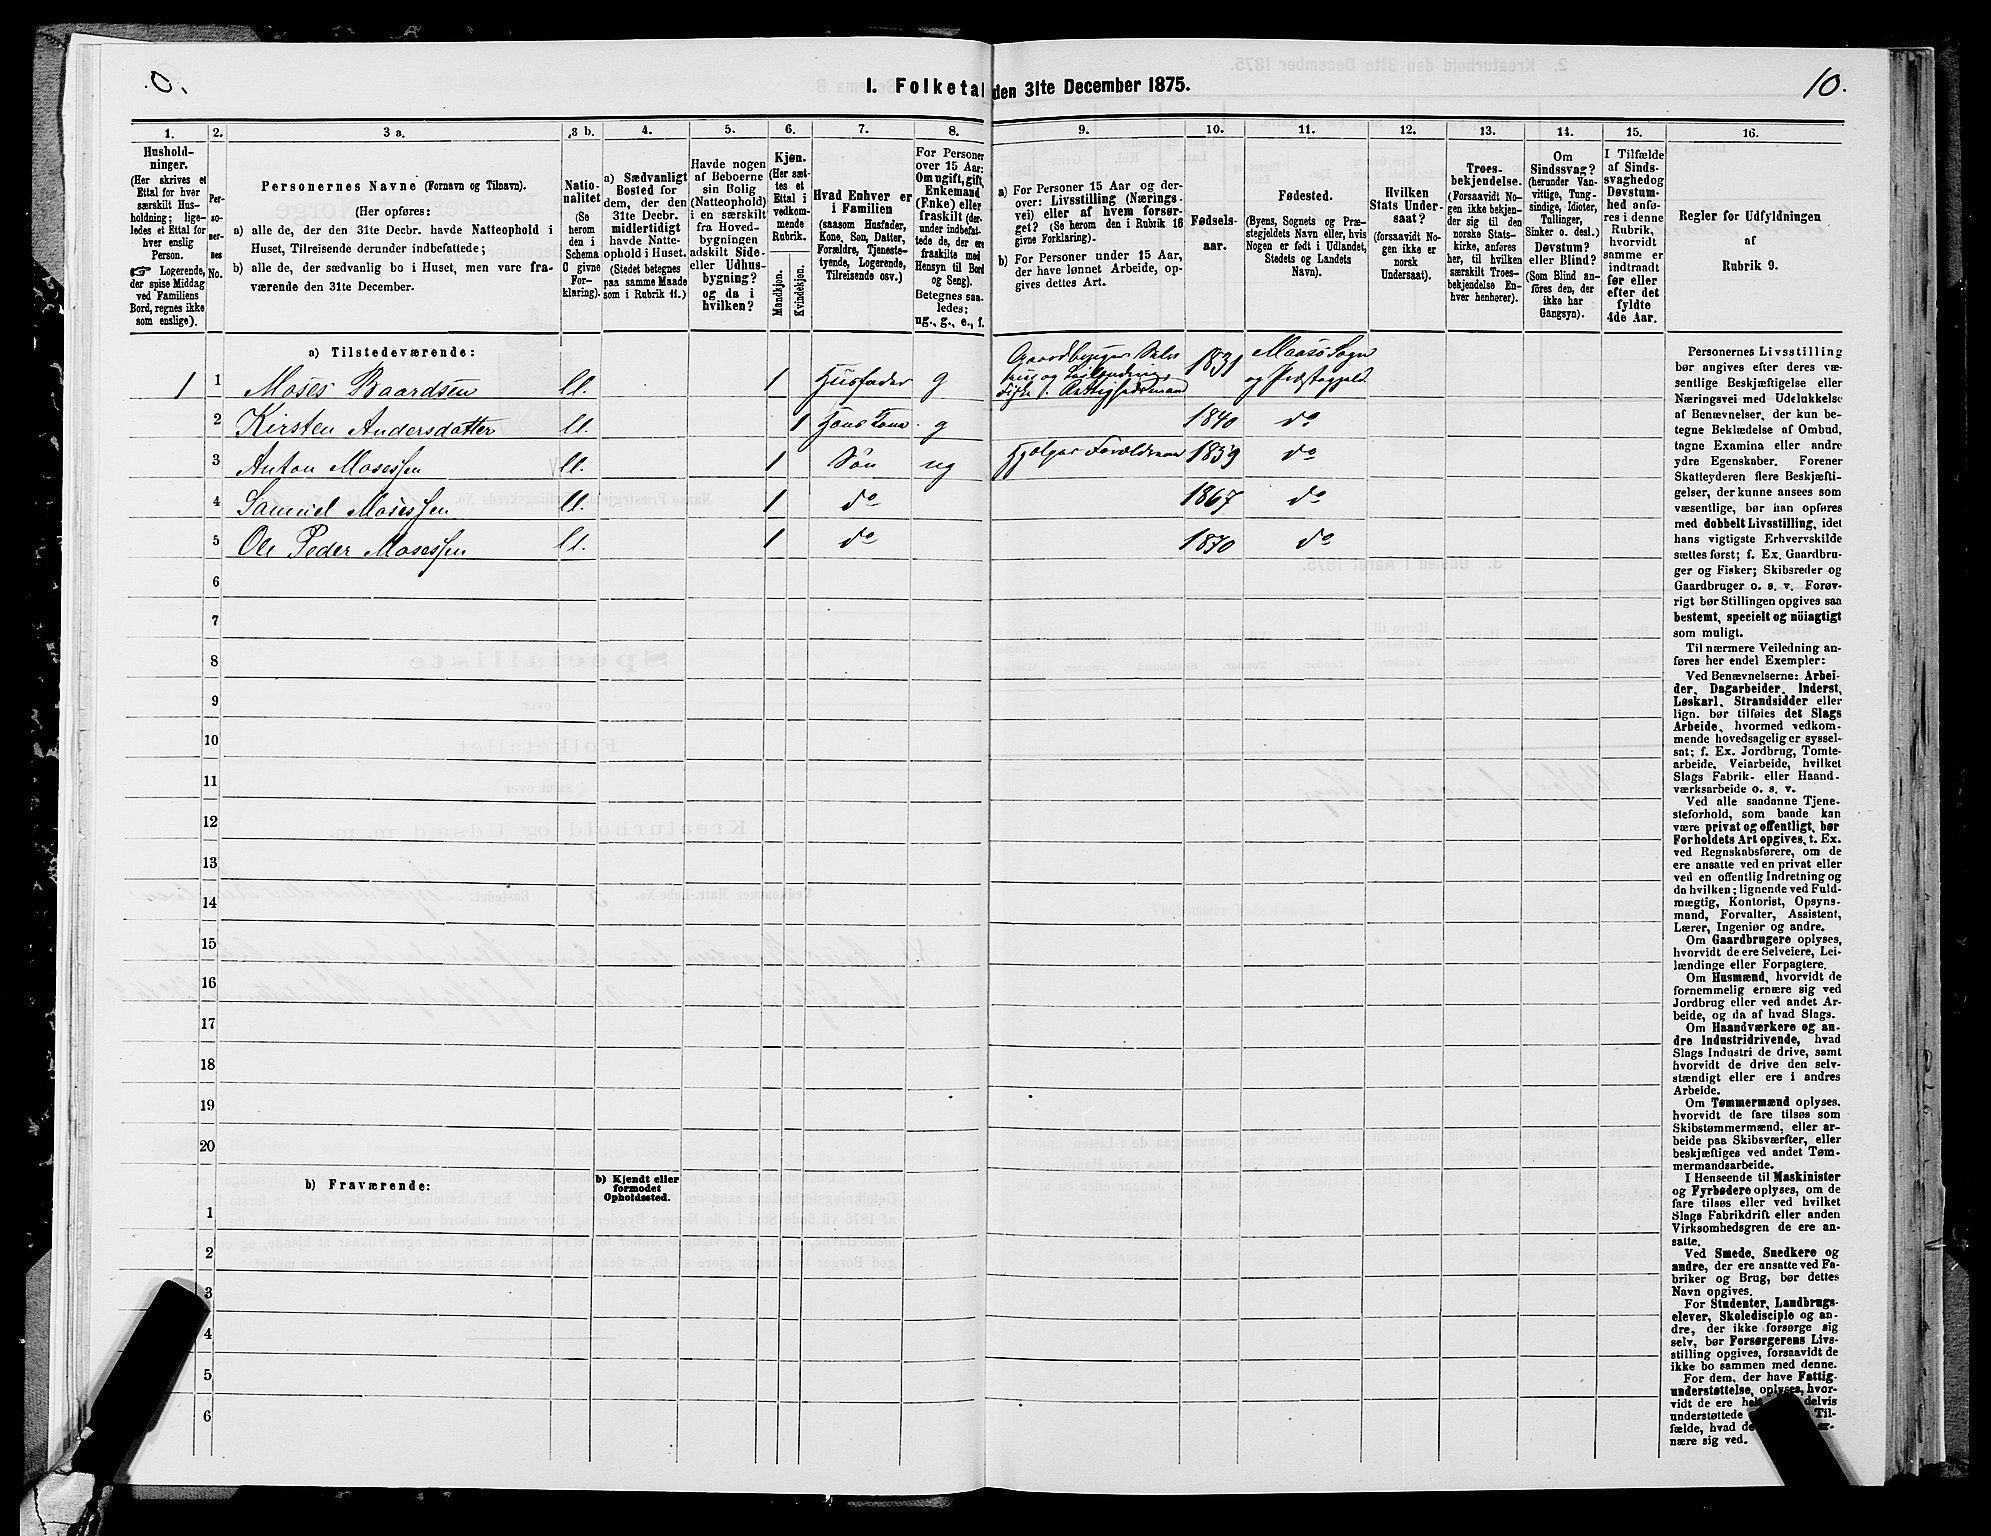 0.
I. Folketal den 31te December 1875.
10.
1.
2.
3 a.
3 b.
4.
5.
6.
7.
8.
9.
10.
11.
12.
13.
14.
15.
16.
Hushold-
ninger.
(Her skrives et
Ettal for hver
særskilt Hus-
holdning; lige-
ledes et Ettal for
hver enslig
Person.
☞ Logerende,
der spise Middag
ved Familiens
Bord, regnes ikke
som enslige).
Per-
so-
ner-
nes
No.
Personernes Navne (Fornavn og Tilnavn).
(Her opføres:
a) alle de, der den 31te Decbr. havde Natteophold i
Huset, Tilreisende derunder indbefattede;
b) alle de, der sædvanlig bo i Huset, men vare fra-
værende den 31te December.
Natio-
nalitet
(Se
herom
den i
Schema
C givne
For-
klaring).
a) Sædvanligt
Bosted for
dem, der den
31te Decbr.
midlertidigt
havde Natte-
ophold i Huset.
(Stedet betegnes
paa samme Maade
som i Rubrik 11.)
Havde nogen
af Beboerne
sin Bolig
(Natteophold)
i en særskilt
fra Hoved-
bygningen
adskilt Side-
eller Udhus-
bygning?
og da i
hvilken?
Kjøn.
(Her sæt-
tes et
Ettal i
vedkom-
mende
Rubrik.
Mandkjøn.
Kvindekjøn.
Hvad Enhver er
i Familien
(saasom Husfader,
Kone, Son, Datter,
Forældre, Tjeneste-
tyende, Logerende,
Tilreisende osv.)
For Personer
over 15 Aar:
Om ugift, gift,
Enkemand
(Enke) eller
fraskilt (der-
under indbefat-
tede de, der ere
fraskilte med
Hensyn til Bord
og Seng).
Betegnes saa-
ledes:
ug., g., e., f.
a) For Personer 15 Aar og der-
over: Livsstilling (Nærings-
vei) eller af hvem forsør-
get (Se herom den i Rubrik 16
givne Forklaring).
b) For Personer under 15 Aar,
der have lønnet Arbeide, op-
gives dettes Art.
Fødsels-
aar.
Fødested.
(Byens, Sognets og Præ-
stegjeldets Navn eller, hvis
Nogen er født i Udlandet,
Stedets og Landets
Navn).
Hvilken
Stats Under-
saat?
(forsaavidt No-
gen ikke er
norsk
Undersaat).
Troes-
bekjendelse.
(Forsaavidt No-
gen ikke bekjen-
der sig til den
norske Stats-
kirke, anføres
her, til hvilken
særskilt Troes-
bekjendelse En-
hver henhører).
Om
Sindssvag?
(herunder Van-
vittige, Tung-
sindige, Idioter,
Tullinger,
Sinker o. desl.)
Døvstum?
eller Blind?
(Som Blind an-
føres den, der
ikke har
Gangsyn).
I Tilfælde
af Sinds-
svaghed og
Døvstum-
hed anfø-
res i denne
Rubrik,
hvorvidt
samme er
indtraadt
før eller
efter det
fyldte
4de Aar.
Regler for Udfyldningen
af
Rubrik 9.
a) Tilstedeværende:
1 1 Moses Baardsen ll. 1 Husfader g 1831 Maasø Sogn og Præstegjeld.
2 Kirsten Andersdatter ll. 1 Hans Kone g 1840 do
3 Anton Mosessen ll. 1 Søn ug Hjelper Forældrene 1859 do
4 Samuel Mosessen ll. 1 do 1867 do
5 Ole Peder Mosessen ll. 1 do 1870 do
6
7
8
9
10
11
12
13
14
15
16
17
18
19
20
b) Fraværende:
b) Kjendt eller
formodet
Opholdssted.
1
2
3
4
5
6
Personernes Livsstilling
bør angives efter deres væ-
sentlige Beskjæftigelse eller
Næringsvei med Udelukkelse
af Benævnelser, der kun be-
tegne Beklædelse af Ombud,
tagne Examina eller andre
ydre Egenskaber. Forener
Skatteyderen flere Beskjæfti-
gelser, der kunne ansees som
væsentlige, bør han opføres
med dobbelt Livsstilling, idet
hans vigtigste Erhvervskilde
sættes først; f. Ex. Gaardbru-
ger og Fisker; Skibsreder og
Gaardbruger o. s. v. Forøv-
rigt bør Stillingen opgives saa
bestemt, specielt og nöiagtigt
som muligt.
Til nærmere Veiledning an-
føres her endel Exempler:
Ved Benævnelserne: Arbei-
der, Dagarbeider, Inderst,
Løskarl, Strandsidder eller
lign. bør tilføies det Slags
Arbeide, hvormed vedkom-
mende hovedsagelig er syssel-
sat; f. Ex. Jordbrug, Tomte-
arbeide, Veiarbeide, hvilket
Slags Fabrik- eller Haand-
værksarbeide o. s. v.
Ved alle saadanne Tjene-
steforhold, som baade kan
være privat og offentligt, bør
Forholdets Art opgives, t. Ex.
ved Regnskabsførere, om de
ere ansatte ved en privat eller
ved en offentlig Indretning og
da hvilken; lignende ved Fuld-
mægtig, Kontorist, Opsyns-
mand, Forvalter, Assistent,
Lærer, Ingeniør og andre.
Om Gaardbrugere oplyses,
hvorvidt de ere Selveiere, Lei-
lændinge eller Forpagtere.
Om Husmænd, hvorvidt de
fornemmelig ernære sig ved
Jordbrug eller ved andet Ar-
beide, og da af hvad Slags.
Om Haandværkere og an-
dre Industridrivende, hvad
Slags Industri de drive, samt
hvorvidt de drive den selv-
stændigt eller ere i andres
Arbeide.
Om Tømmermænd oplyses,
hvorvidt de fare tilsøs som
Skibstømmermænd, eller ar-
beide paa Skibsværfter, eller
beskjæftiges ved andet Tøm-
mermandsarbeide.
I Henseende til Maskinister
og Fyrbødere oplyses, om de
fare tilsøs eller ved hvilket
Slags Fabrikdrift eller anden
Virksomhedsgren de ere an-
satte.
Ved Smede, Snedkere og
andre, der ere ansatte ved Fa-
briker og Brug, bør dettes
Navn opgives.
For Studenter, Landbrugs-
elever, Skoledisciple og an-
dre, der ikke forsørge sig
selv, bør Forsørgerens Livs-
stilling opgives, forsaavidt de
ikke bo sammen med denne.
For dem, der have Fattig-
understøttelse, oplyses, hvor-
vidt de ere delvis
understøttede Til-
fælde, hvad de er-
nære sig ved.